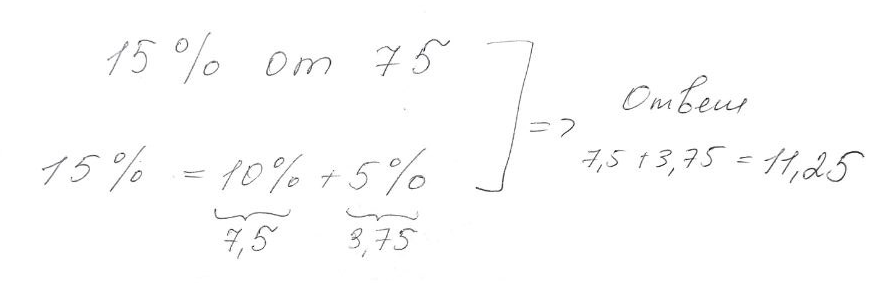 15% от 75
15% = 10% + 5%
7,5 3,75
=> Ответ
7,5 + 3,75 = 11,25